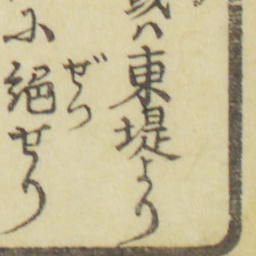 或ハ東堤より
に絕せり
ぜつ